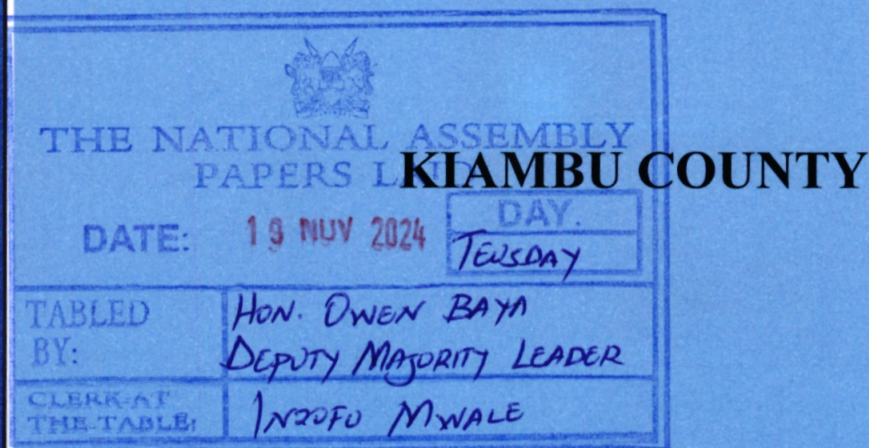 THE NATIONAL ASSEMBLY
PAPERS LAID
KIAMBU COUNTY
DATE: 19 NOV 2024
DAY.
TEUSDAY
TABLED BY:
HON. OWEN BAYA
DEPUTY MAJORITY LEADER
CLERK-AT THE-TABLE:
INZOFU MWALE